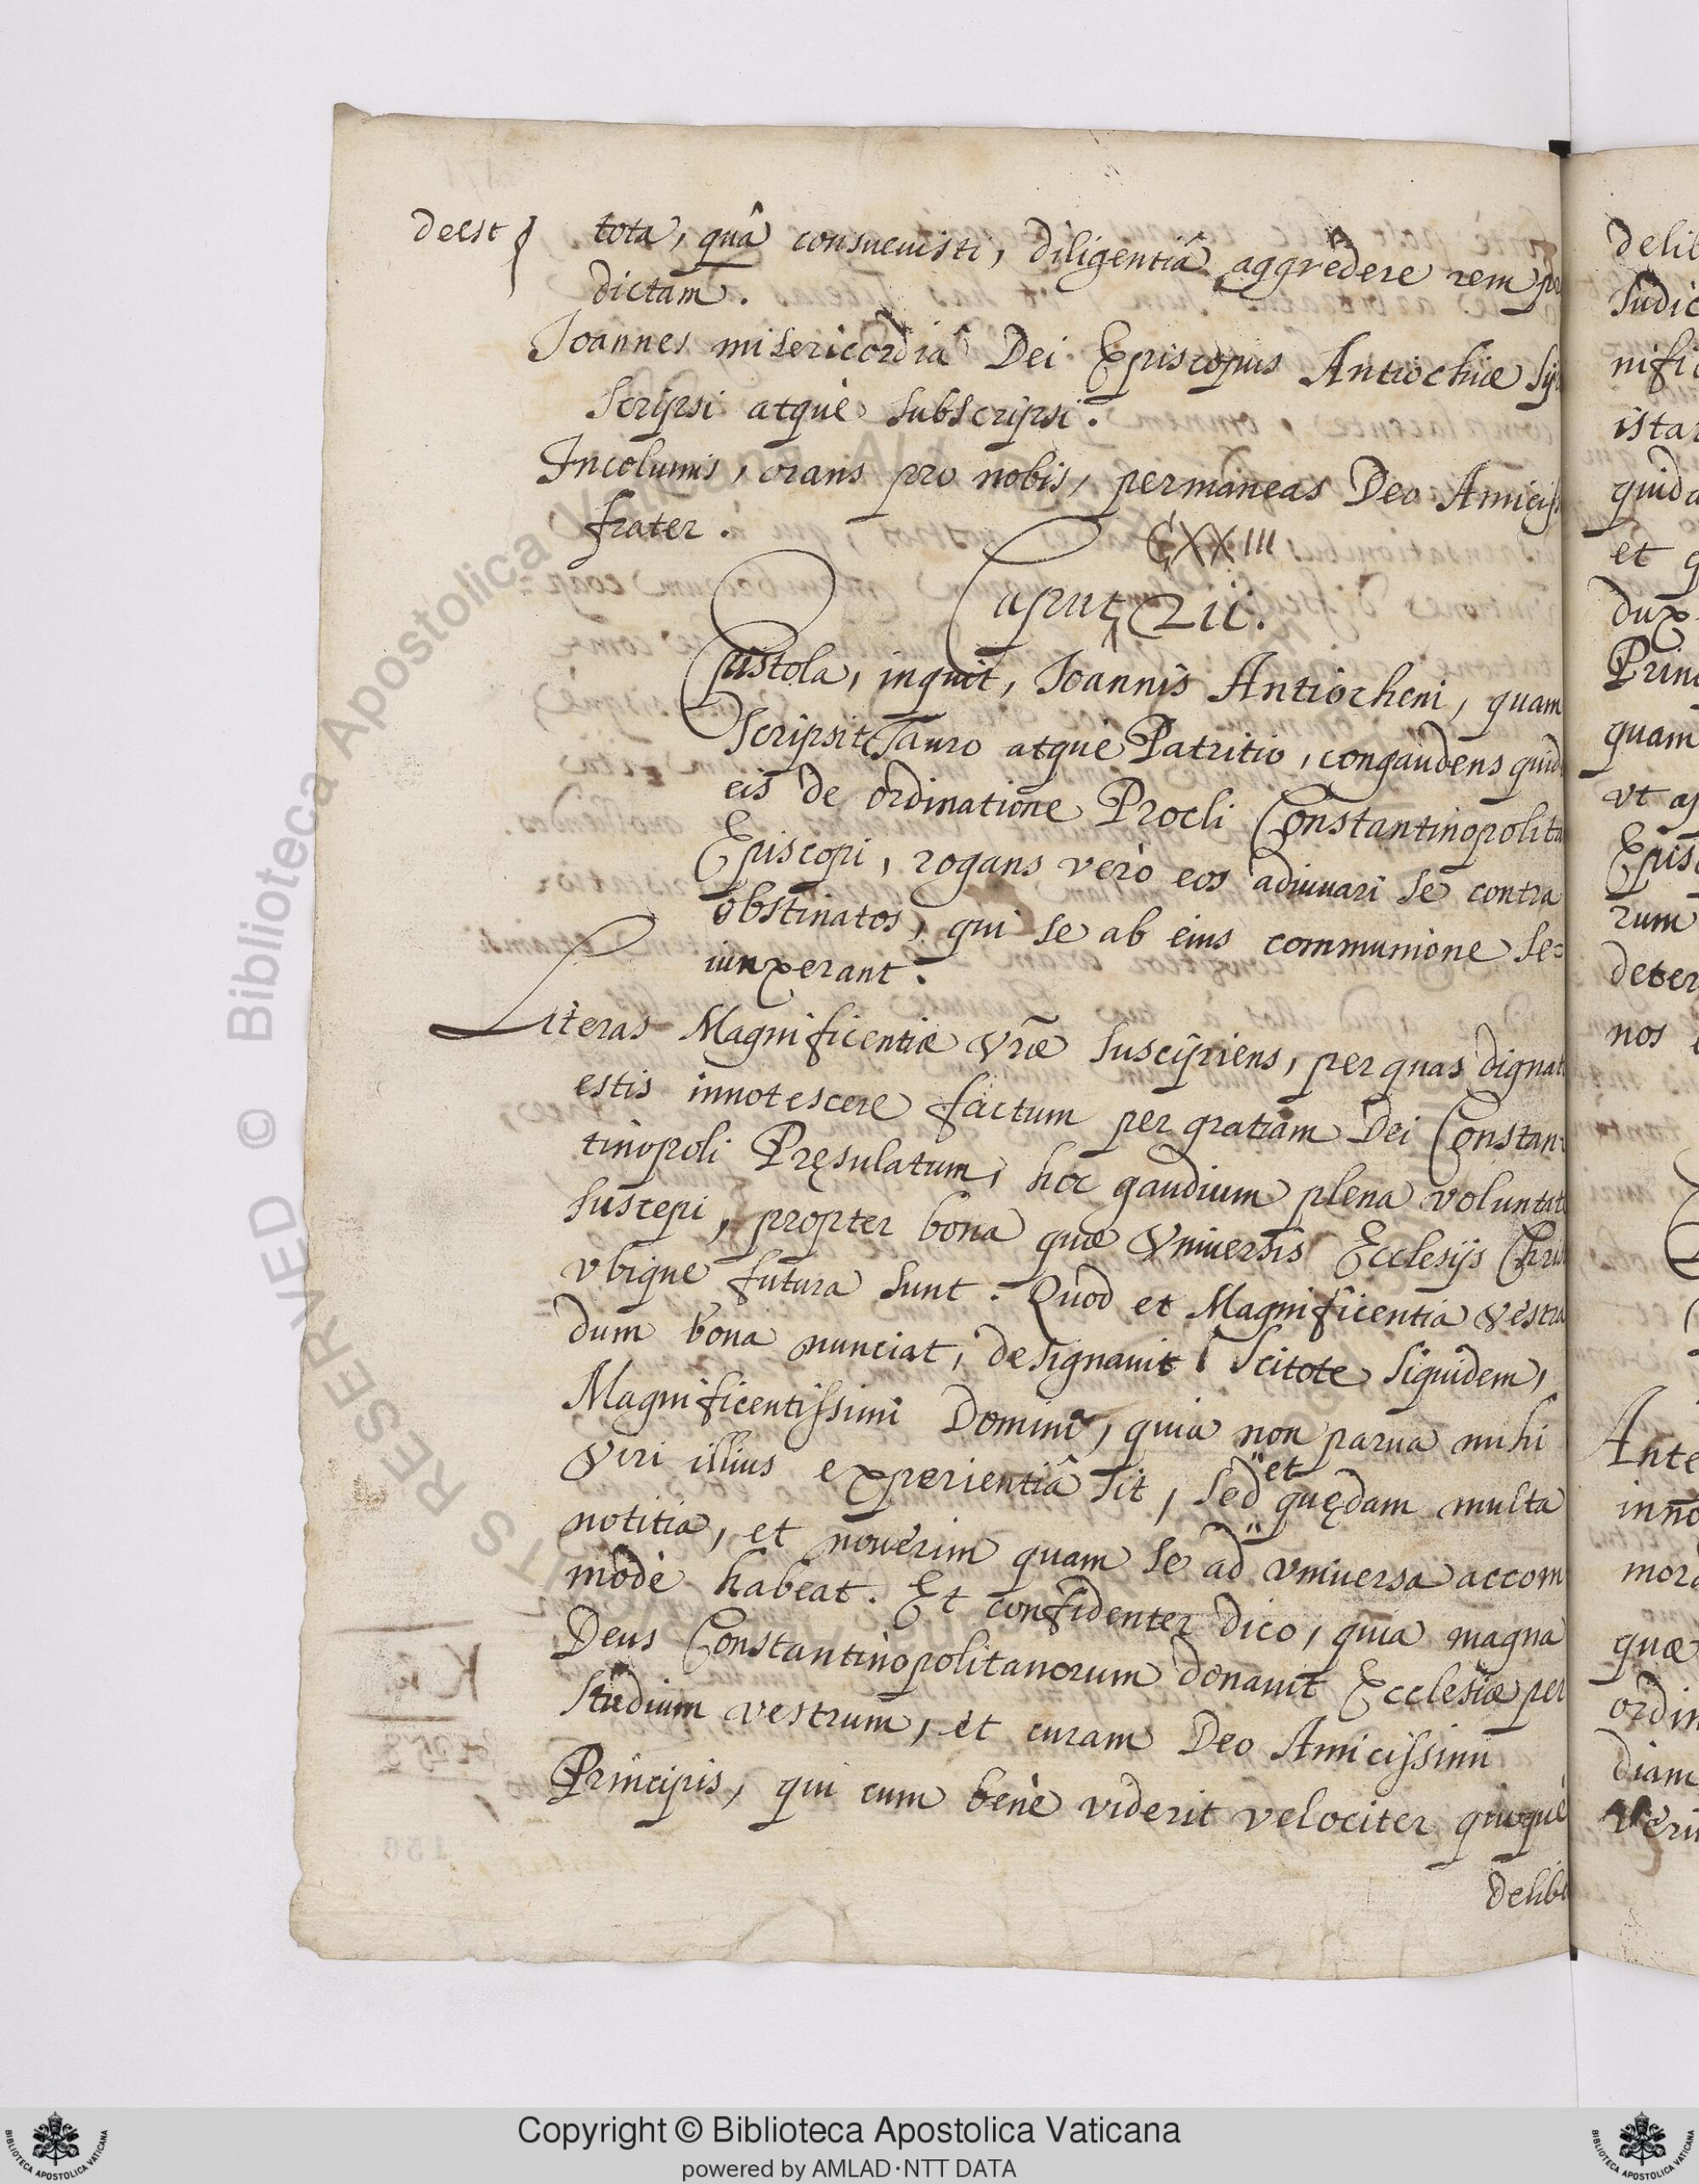 deest { tota, quâ consueuisti, diligentiâ aggredere rem pr
dictam.
Ioannes misericordiâ Dei Episcopus Antiochiæ
scripsi atque subscripsi.
Incolumis, orans pro nobis, permaneas Deo Amiciss
frater.
CXXIII
Caput
Epistola, inquit, Ioannis Antiocheni, quam
scripsit Tauro atque Patritio, congaudens quid
eis de ordinatione Procli Constantinopolita
Episcopi, rogans verò eos adiuuari se contra
obstinatos, qui se ab eius communione se=
iunxerant.
Literas Magnificentiæ Vræ suscipiens, per quas dignat
estis innotescere factum per gratiam Dei Constan=
tinopoli Pręsulatum, hoc gaudium plena voluntat
suscepi, propter bona quæ Vniuersis Ecclesijs Chri
vbique futura sunt. Quod et Magnificentia Vestra
dum bona nunciat, designauit. Scitote siquidem,
Magnificentissimi Domini, quia non parua mihi
et
Viri illius experientiâ sit, sed quędam multa
notitia, et nouerim quam se ad vniuersa accom
modè habeat. Et confidenter dico, quia magna
Deus Constantinopolitanorum donauit Ecclesiæ per
studium vestrum, et curam Deo Amicissimi
Principis, qui cum benè viderit velociter quoquè
delibe
delib
Iudic
nifi
ista
quid
et q
dux
Prin
quam
vt a
Epis
rum
deter
nos
Ante
inno
mord
quæ
ordin
diam
Veru
© Biblioteca Apostolica Vaticana
Copyright © Biblioteca Apostolica Vaticana
powered by AMLAD·NTT DATA
BIBLIOTECA APOSTOLICA VATICANA
BIBLIOTECA APOSTOLICA VATICANA